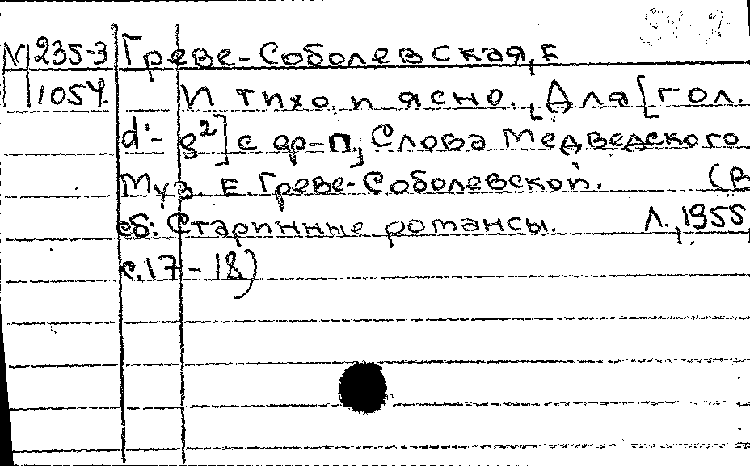 М 235-3 Греве-Соболевская, Е
1054 И тихо и ясно. [Для [гол.
d¹- g²] с ф-п] Слова Медведского
Муз. Е. Греве-Соболевской. (В
сб: Старинные романсы. Л., 1955,
с. 17-18)